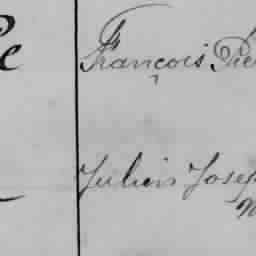 François Pie
Julien Josep